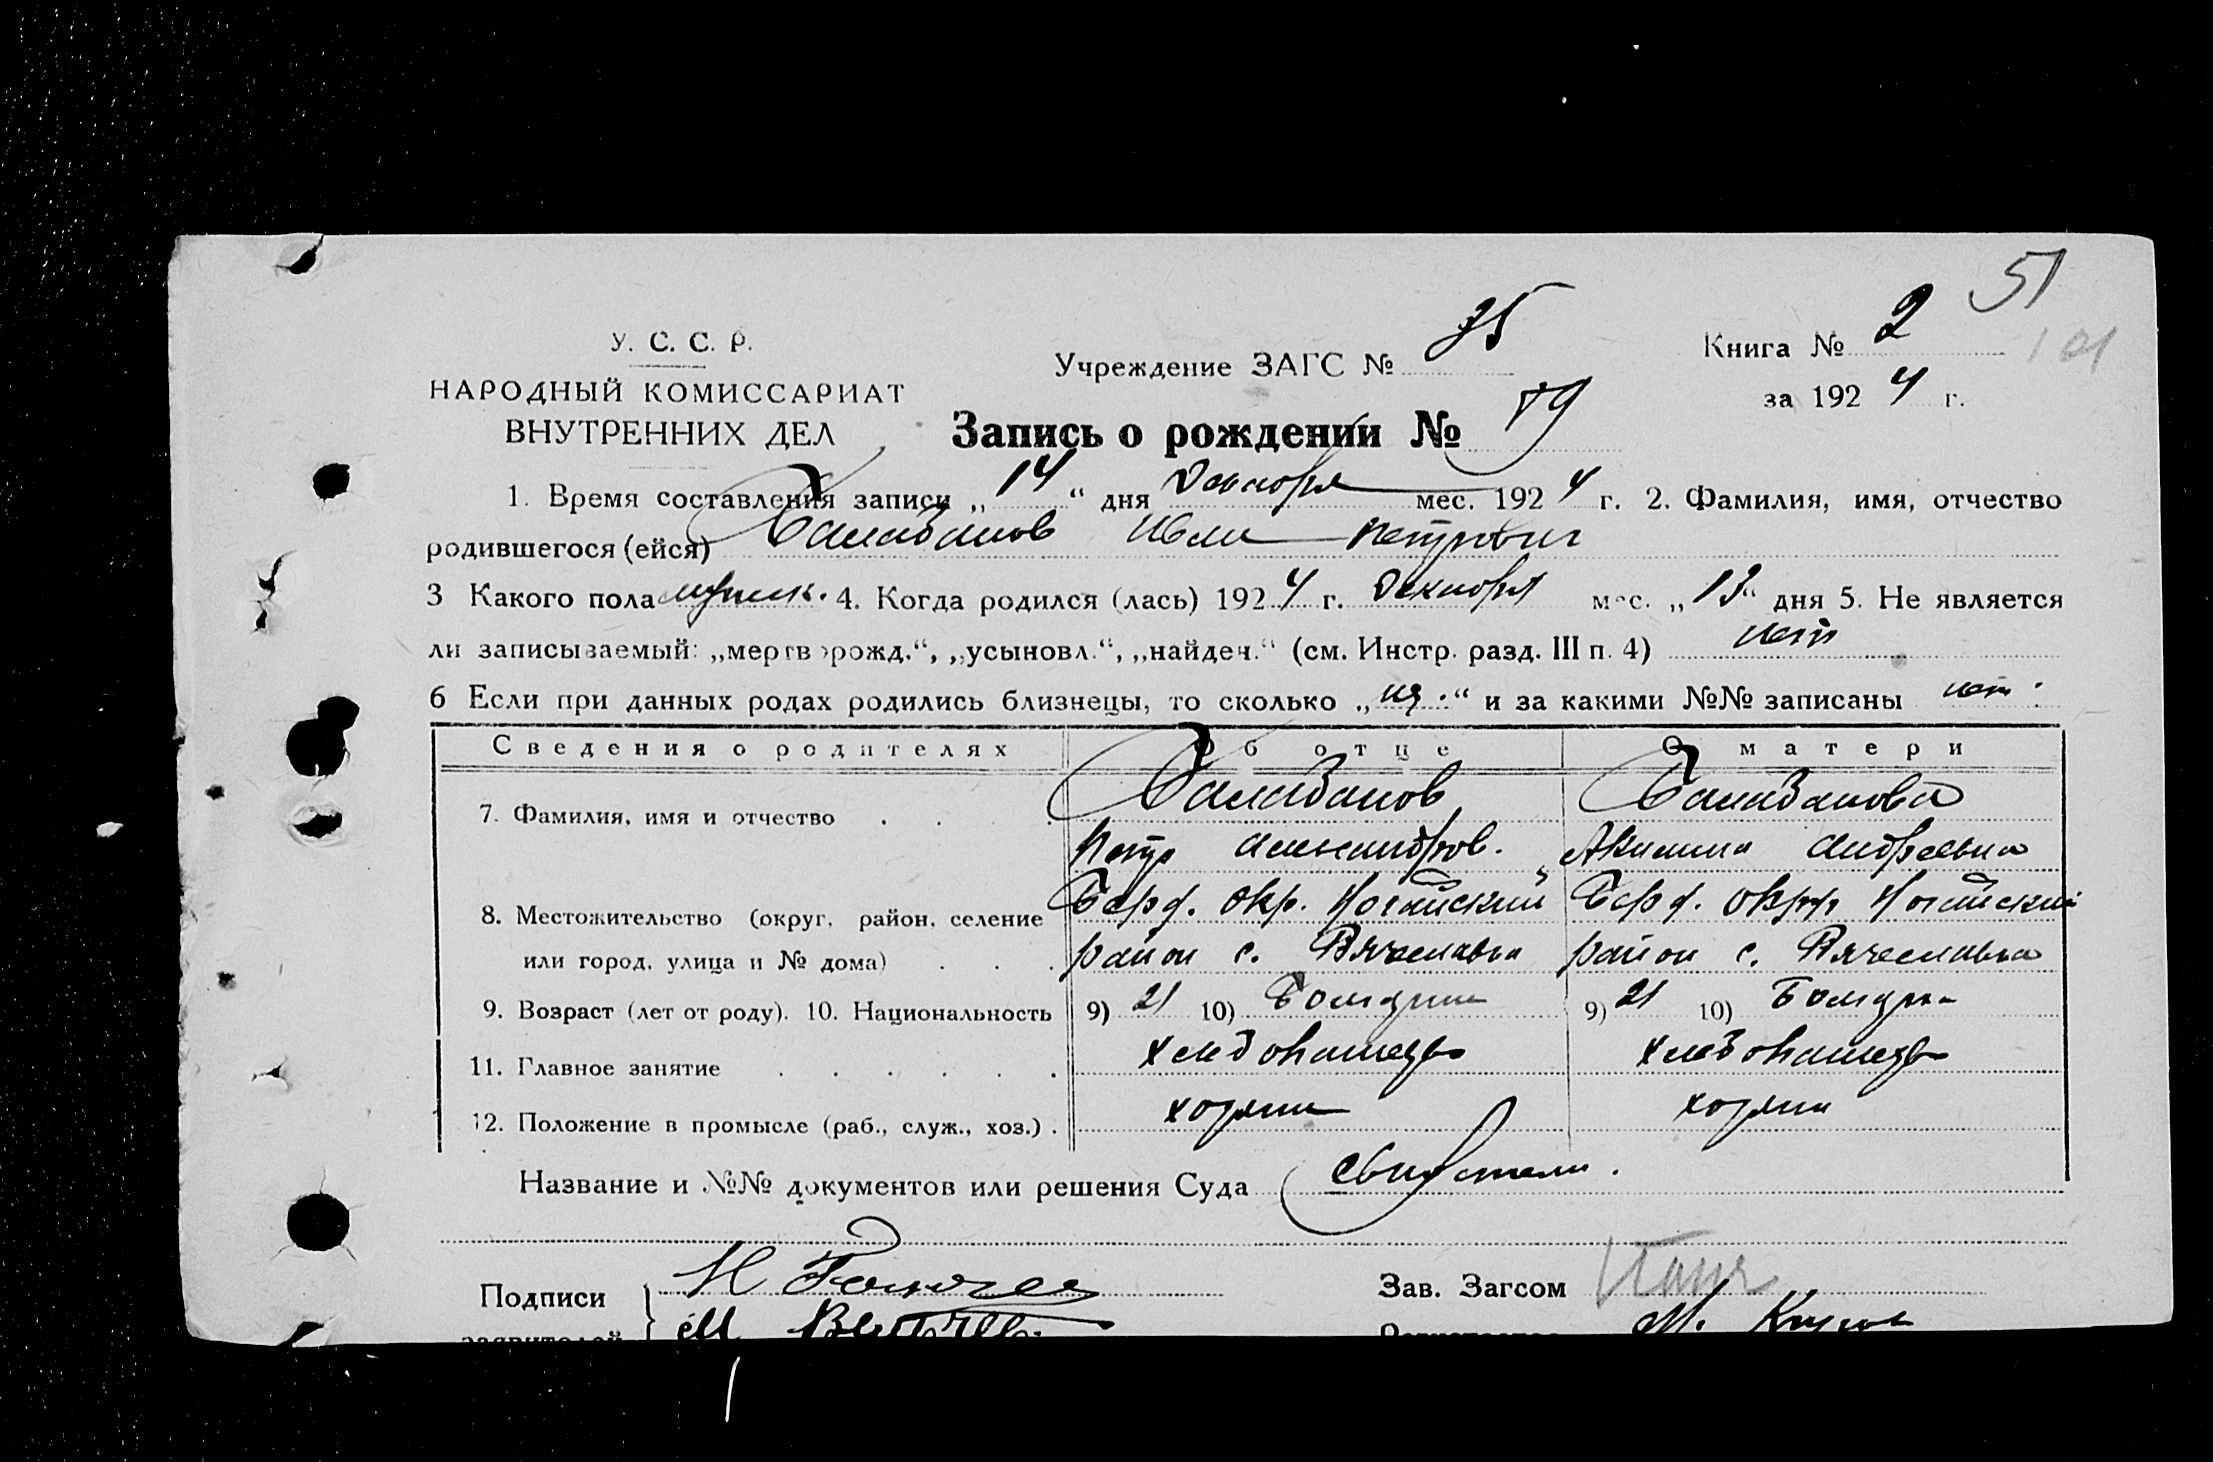 51
У. С. С. Р.
Учреждение ЗАГС № 35
Книга № 2
101
НАРОДНЫЙ КОМИССАРИАТ
за 1924 г.
ВНУТРЕННИХ ДЕЛ
Запись о рождении № 79
1. Время составления записи „14“ дня Декабря мес. 1924 г. 2. Фамилия, имя, отчество
родившегося (ейся) Балабанов Иван Петрович
3 Какого пола мужск. 4. Когда родился (лась) 1924 г. Декабря мес. „13“ дня 5. Не является
ли записываемый: „мертворожд.“, „усыновл.“, „найден.“ (см. Инстр. разд. III п. 4) нет
6 Если при данных родах родились близнецы, то сколько „ “ и за какими №№ записаны нет
Сведения о родителях Об отце О матери
7. Фамилия, имя и отчество Балабанов Балабанова
Петр Александров. Акилина Андреевна
8. Местожительство (округ, район, селение Берд. окр. Ногайский Берд. окр. Ногайский
или город, улица и № дома) район с. Вячеславка район с. Вячеславка
9. Возраст (лет от роду). 10. Национальность 9) 21 10) Болгарин 9) 21 10) Болгарка
11. Главное занятие хлебопашец хлебопашец
12. Положение в промысле (раб., служ., хоз.) хозяин хозяин
Название и №№ документов или решения Суда свидетели.
Подписи Зав. Загсом
заявителей М.